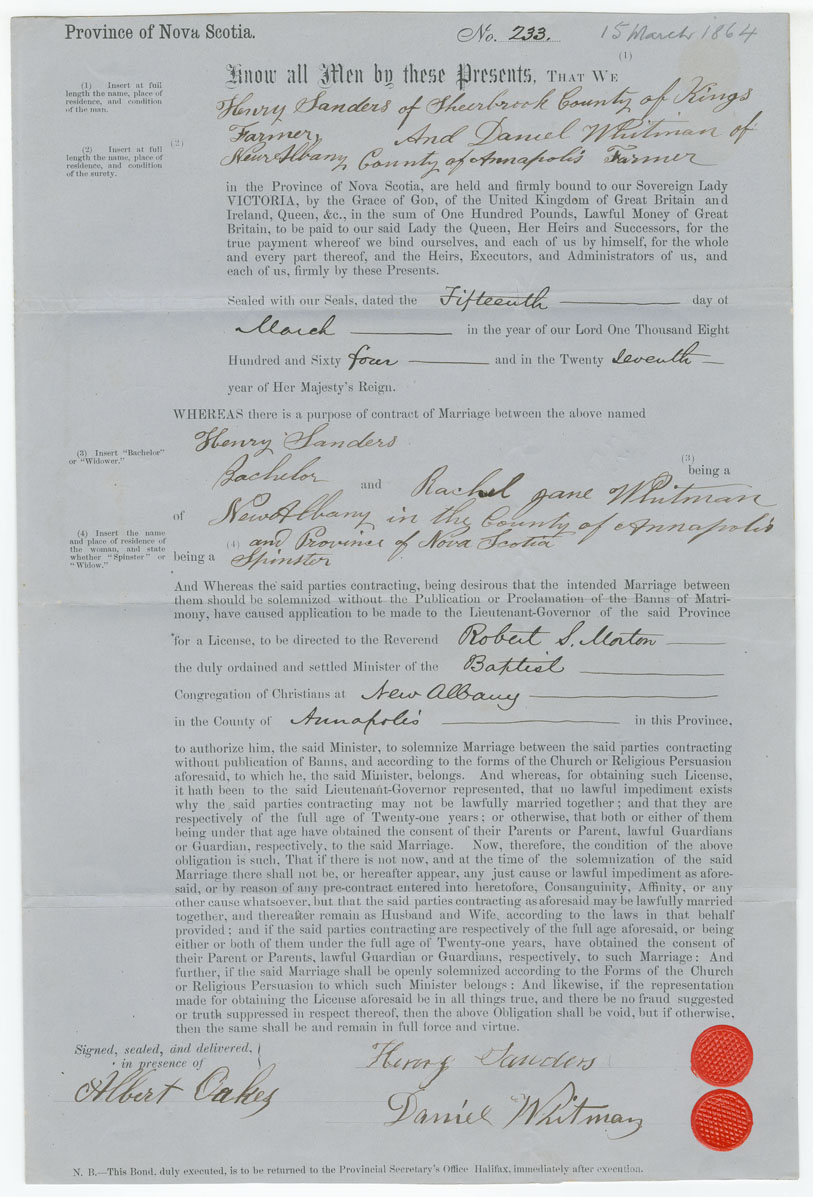 Province of Nova Scotia.
No. 233.
15 March 1864
(1)
Know all Men by these Presents, THAT WE
(1) Insert at full
length the name, place of
residence, and condition
of the man.
Henry Sanders of Sheerbrook County of Kings
Farmer, And Daniel Whitman of
(2)
New Albany County of Annapolis Farmer
(2) Insert at full
length the name, place of
residence, and condition
of the surety.
in the Province of Nova Scotia, are held and firmly bound to our Sovereign Lady
VICTORIA, by the Grace of GOD, of the United Kingdom of Great Britain and
Ireland, Queen, &c., in the sum of One Hundred Pounds, Lawful Money of Great
Britain, to be paid to our said Lady the Queen, Her Heirs and Successors, for the
true payment whereof we bind ourselves, and each of us by himself, for the whole
and every part thereof, and the Heirs, Executors, and Administrators of us, and
each of us, firmly by these Presents.
Sealed with our Seals, dated the Fifteenth day of
March in the year of our Lord One Thousand Eight
Hundred and Sixty four and in the Twenty Seventh
year of Her Majesty's Reign.
WHEREAS there is a purpose of contract of Marriage between the above named
Henry Sanders
(3) Insert "Bachelor"
or "Widower."
(3)
being a
Bachelor and Rachel Jane Whitman
of New Albany in the County of Annapolis
(4) and Province of Nova Scotia
being a Spinster
(4) Insert the name
and place of residence of
the woman, and state
whether "Spinster" or
"Widow."
And Whereas the said parties contracting, being desirous that the intended Marriage between
them should be solemnized without the Publication or Proclamation of the Banns of Matri-
mony, have caused application to be made to the Lieutenant-Governor of the said Province
for a License, to be directed to the Reverend Robert S. Morton
the duly ordained and settled Minister of the Baptist
Congregation of Christians at New Albany
in the County of Annapolis in this Province,
to authorize him, the said Minister, to solemnize Marriage between the said parties contracting
without publication of Banns, and according to the forms of the Church or Religious Persuasion
aforesaid, to which he, the said Minister, belongs. And whereas, for obtaining such License,
it hath been to the said Lieutenant-Governor represented, that no lawful impediment exists
why the said parties contracting may not be lawfully married together; and that they are
respectively of the full age of Twenty-one years; or otherwise, that both or either of them
being under that age have obtained the consent of their Parents or Parent, lawful Guardians
or Guardian, respectively, to the said Marriage. Now, therefore, the condition of the above
obligation is such, That if there is not now, and at the time of the solemnization of the said
Marriage there shall not be, or hereafter appear, any just cause or lawful impediment as afore-
said, or by reason of any pre-contract entered into heretofore, Consanguinity, Affinity, or any
other cause whatsoever, but that the said parties contracting as aforesaid may be lawfully married
together, and thereafter remain as Husband and Wife, according to the laws in that behalf
provided; and if the said parties contracting are respectively of the full age aforesaid, or being
either or both of them under the full age of Twenty-one years, have obtained the consent of
their Parent or Parents, lawful Guardian or Guardians, respectively, to such Marriage: And
further, if the said Marriage shall be openly solemnized according to the Forms of the Church
or Religious Persuasion to which such Minister belongs: And likewise, if the representation
made for obtaining the License aforesaid be in all things true, and there be no fraud suggested
or truth suppressed in respect thereof, then the above Obligation shall be void, but if otherwise,
then the same shall be and remain in full force and virtue.
Signed, sealed, and delivered,
in presence of
Henry Sanders
Albert Oakes
Daniel Whitman
N. B.—This Bond, duly executed, is to be returned to the Provincial Secretary's Office Halifax, immediately after execution.